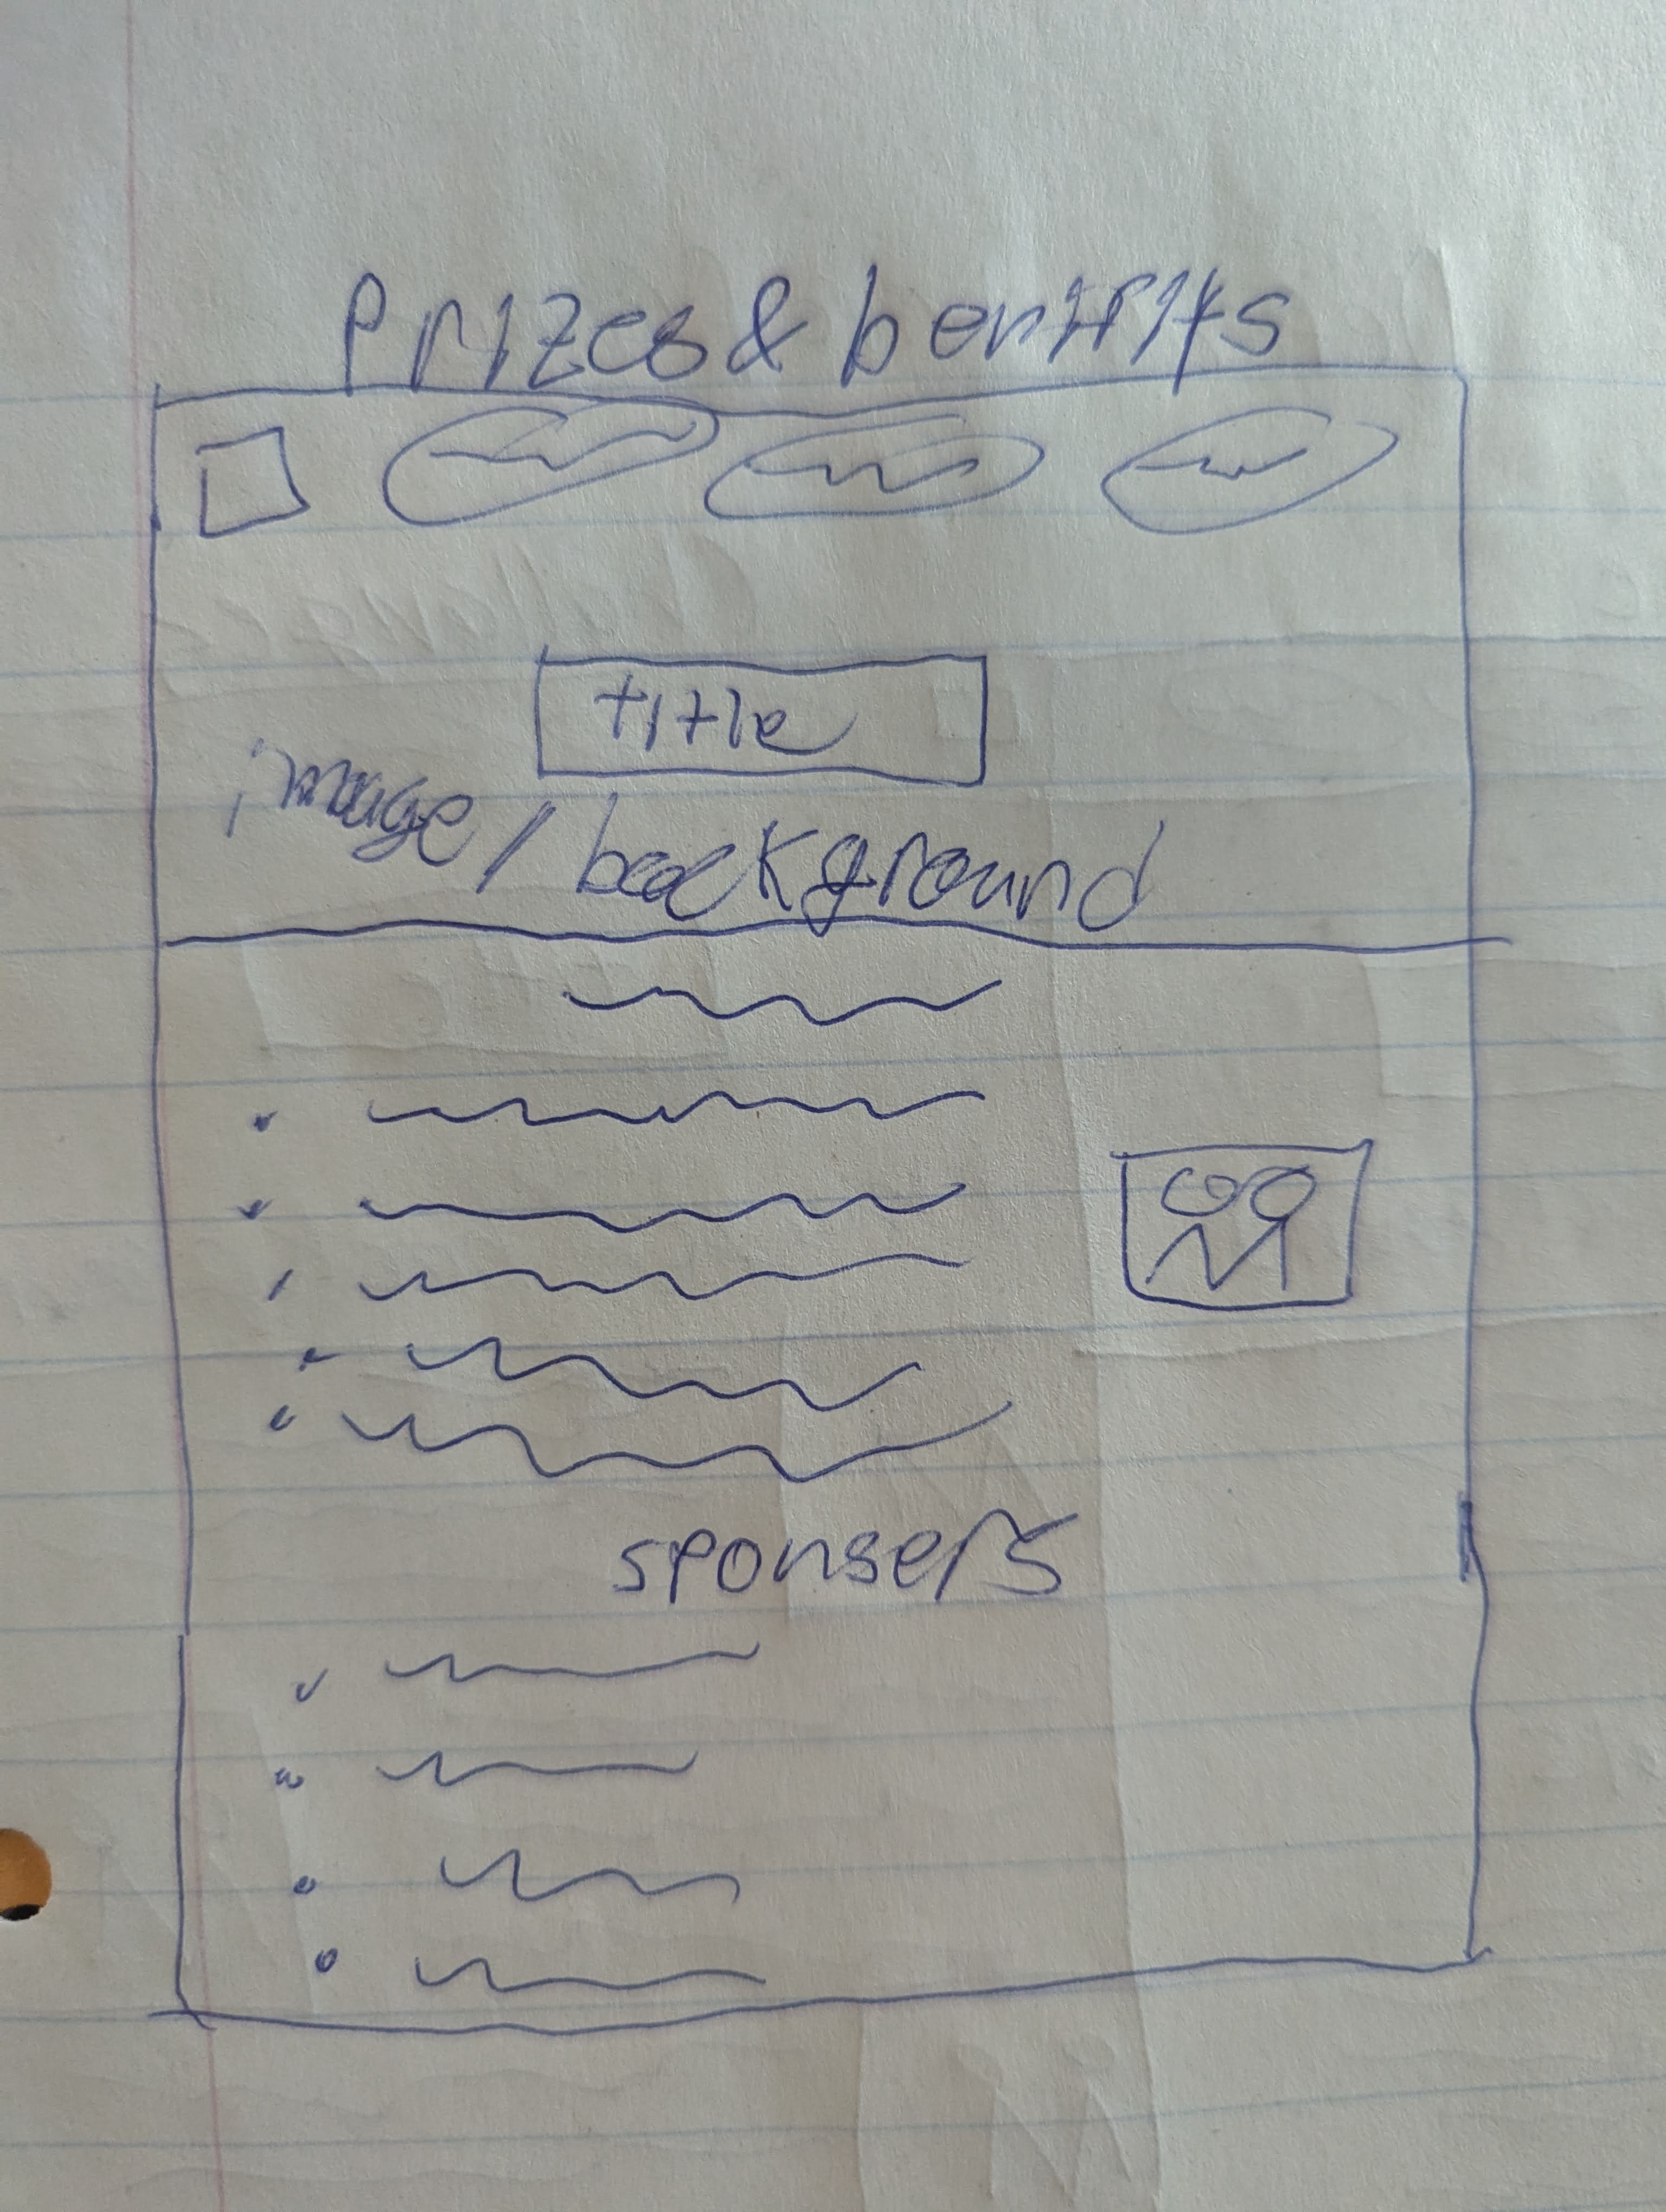 Prizes & benifits
title
image / background
sponsers